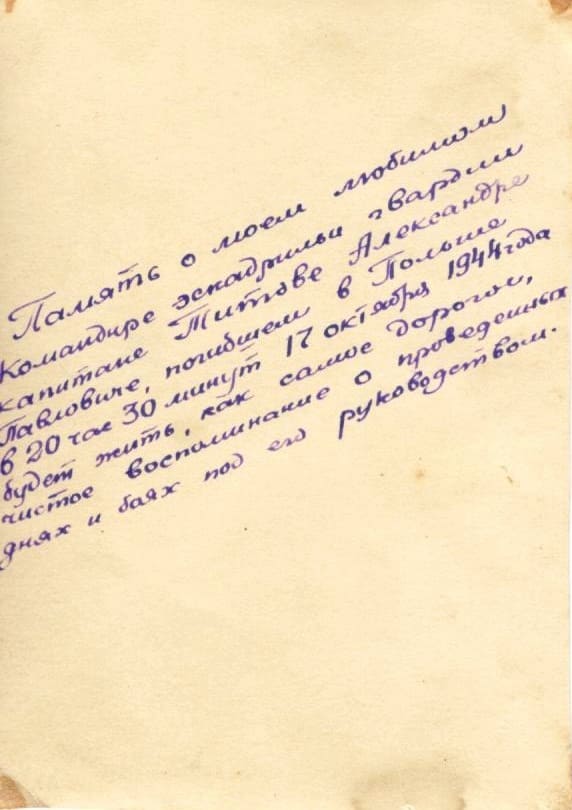 Память о моем любимом
Командире эскадрильи гвардии
капитане Титове Александре
Павловиче, погибшем в Польше
в 20 час 30 минут 17 октября 1944 года
будет жить, как самое дорогое,
чистое воспоминание о проведенных
днях и боях под его руководством.